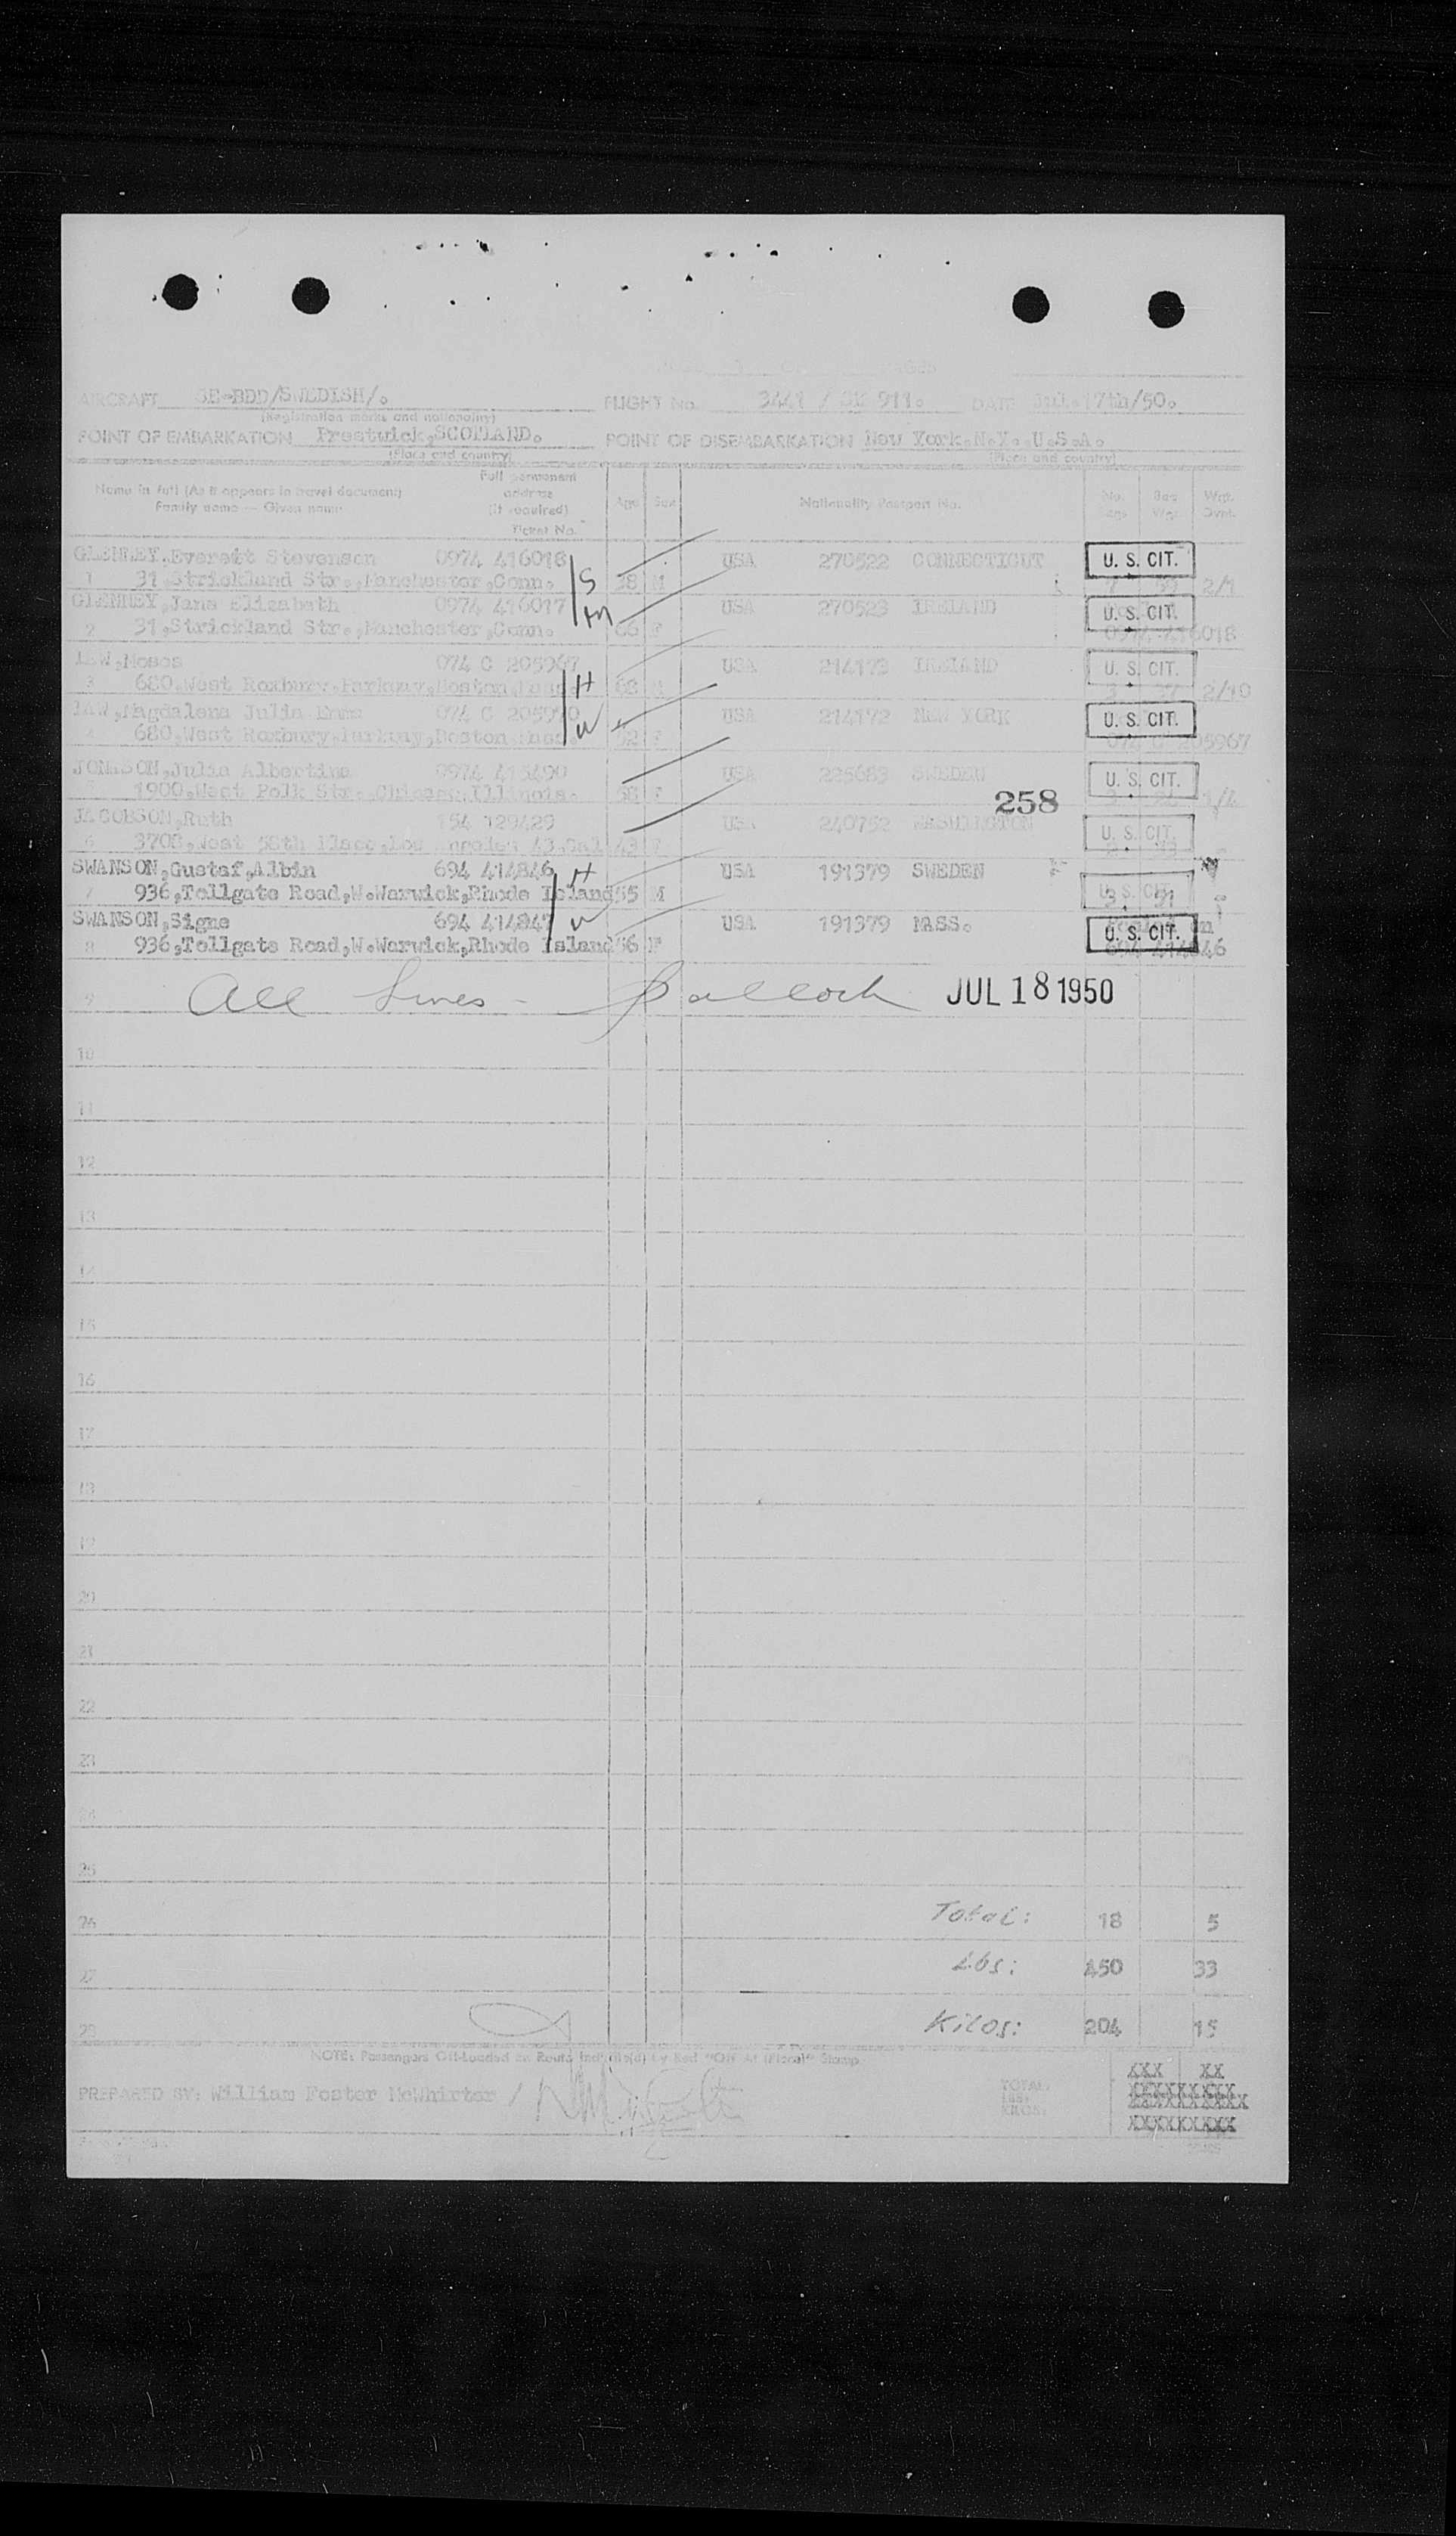 AIRCRAFT SE-BDD/SWEDISH/. FLIGHT No. 3441 / SK 911. DATE Jul. 17th/50.
(Registration marks and nationality)
POINT OF EMBARKATION Prestwick,SCOTLAND. POINT OF DISEMBARKATION New York.N.Y..U.S.A.
(Place and country) (Place and country)
Name in full (As it appears in travel document) Full permanent address (if required) Age Sex Nationality Passport No. No. Bag Wgt.
Family name — Given name Ticket No.
GLENNEY,Everett Stevenson 0974 416018 S USA 270522 CONNECTICUT U. S. CIT.
1 31,Strickland Str.,Manchester,Conn. 38 M 2/1
GLENNEY,Jane Elizabeth 0974 416017 m USA 270523 IRELAND U. S. CIT.
2 31,Strickland Str.,Manchester,Conn. 66 F 0974 416018
LAW,Moses 074 C 205967 USA 214173 IRELAND U. S. CIT.
3 680,West Roxbury.Parkway,Boston,Mass. H 63 M 3 2/10
LAW,Magdalena Julia Emma 074 C 205970 USA 214172 NEW YORK U. S. CIT.
4 680,West Roxbury.Parkway,Boston Mass. W 52 F 074 C 205967
JOHNSON,Julia Albertina 0974 415490 USA 225683 SWEDEN U. S. CIT.
5 1900,West Polk Str.,Chicago,Illinois. 58 F 258 1/4
JACOBSON,Ruth 154 129429 USA 240752 WASHINGTON U. S. CIT.
6 3708,West 58th Place,Los Angeles 43,Cal 43 F
SWANSON,Gustaf,Albin 694 414846 H USA 191379 SWEDEN U. S. CIT.
7 936,Tollgate Road,W.Warwick,Rhode Island 55 M 3 31
SWANSON,Signe 694 414847 W USA 191379 MASS. U. S. CIT.
8 936,Tollgate Road,W.Warwick,Rhode Island 56 F 694 414846
9 All Lines - Pallock JUL 18 1950
10
11
12
13
14
15
16
17
18
19
20
21
22
23
24
25
26 Total: 18 5
27 Lbs: 450 33
28 Kilos: 204 15
NOTE: Passengers Off-Loaded En Route Indicated by Red "Off At (Place)" Stamp.
PREPARED BY: William Foster McWhirter / TOTAL: XXX XX
LBS: XXXXXXXXX
KILOS: XXXXXXXXX